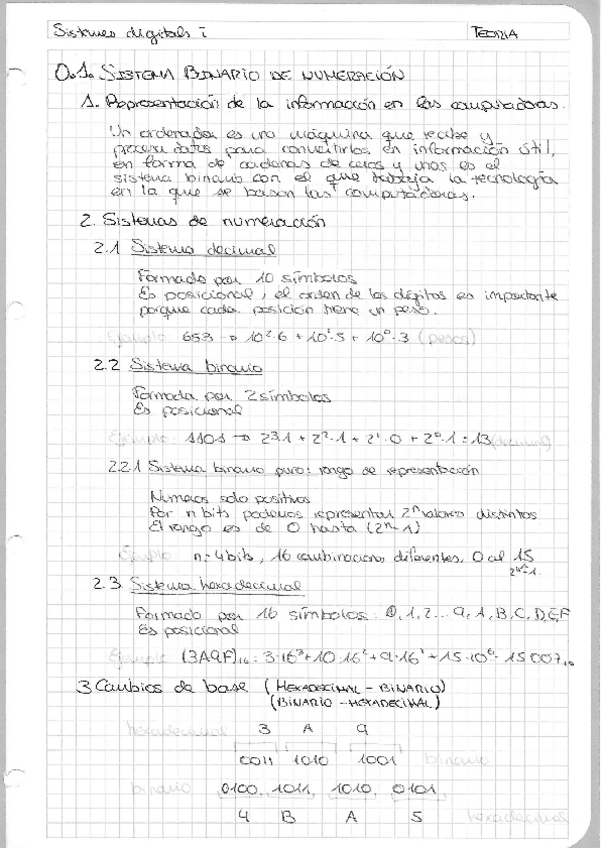 Sistemes digitals i TEORIA
0.1. SISTEMA BINARIO DE NUMERACIÓN
1. Representación de la información en las computadoras.
Un ordenador es una máquina que recibe y
procesa datos para convertirlos en información útil,
en forma de cadenas de ceros y unos es el
sistema binario con el que trabaja la tecnología
en la que se basan las computadoras.
2. Sistemas de numeración
2.1 Sistema decimal
Formado por 10 símbolos
Es posicional, el orden de los dígitos es importante
porque cada posición tiene un peso.
Ejemplo: 653 → 10²·6 + 10¹·5 + 10⁰·3 (pesos)
2.2 Sistema binario
Formada por 2 símbolos
Es posicional
Ejemplo: 1101 → 2³·1 + 2²·1 + 2¹·0 + 2⁰·1 = 13 (decimal)
2.2.1 Sistema binario puro: rango de representación
Números solo positivos
Por n bits podemos representar 2ⁿ valores distintos
El rango es de 0 hasta (2ⁿ-1)
Ejemplo: n=4 bits, 16 combinaciones diferentes, 0 al 15
2ⁿ-1
2.3. Sistema hexadecimal
Formado por 16 símbolos: 0, 1, 2... 9, A, B, C, D, E, F
Es posicional
Ejemplo: (3A9F)₁₆ = 3·16³ + 10·16² + 9·16¹ + 15·10⁰ = 15007₁₀
3 Cambios de base (HEXADECIMAL - BINARIO)
(BINARIO - HEXADECIMAL)
hexadecimal 3 A 9
0011 1010 1001 binario
binario 0100, 1011, 1010, 0101,
4 B A 5 hexadecimal